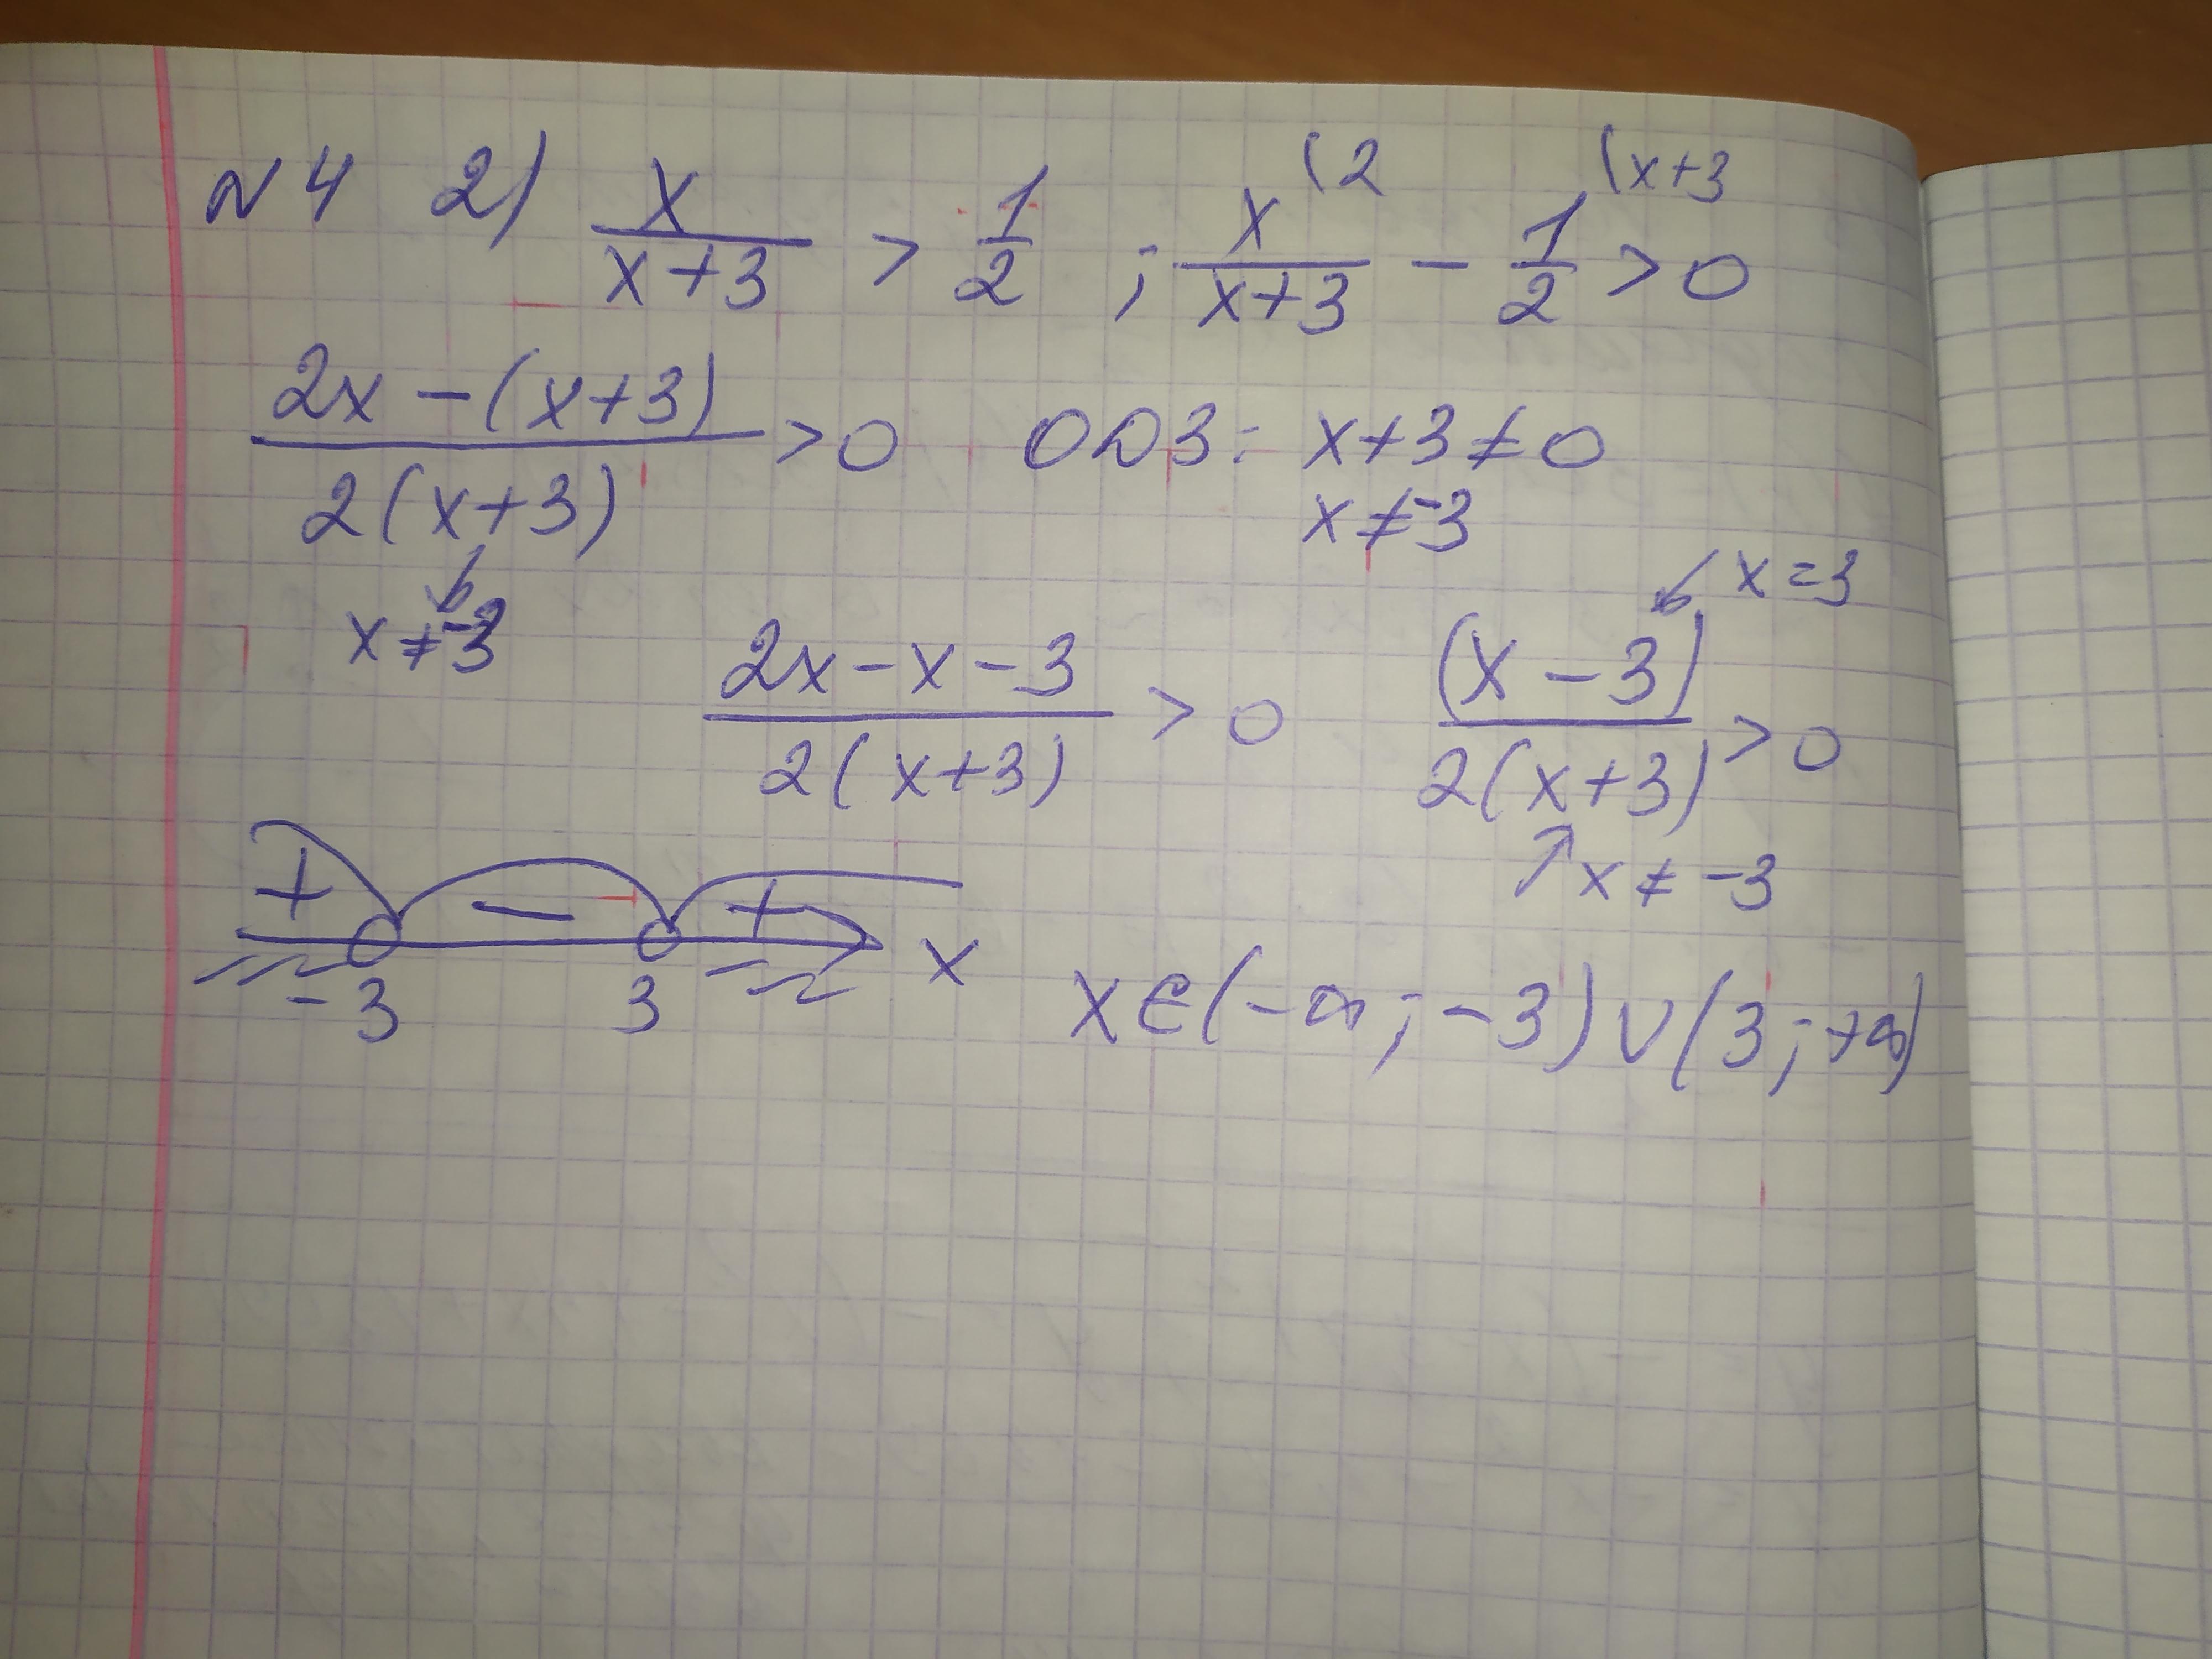 N4 2) x/(x+3) > 1/2 ; x/(x+3) (2 - 1/2 (x+3 > 0
(2x-(x+3))/(2(x+3)) > 0 ОДЗ: x+3≠0
x≠-3
x≠-3
(2x-x-3)/(2(x+3)) > 0 (x-3)/(2(x+3)) > 0
x=3
x≠-3
+ - +
-3 3 x
x∈(-∞;-3)∪(3;+∞)